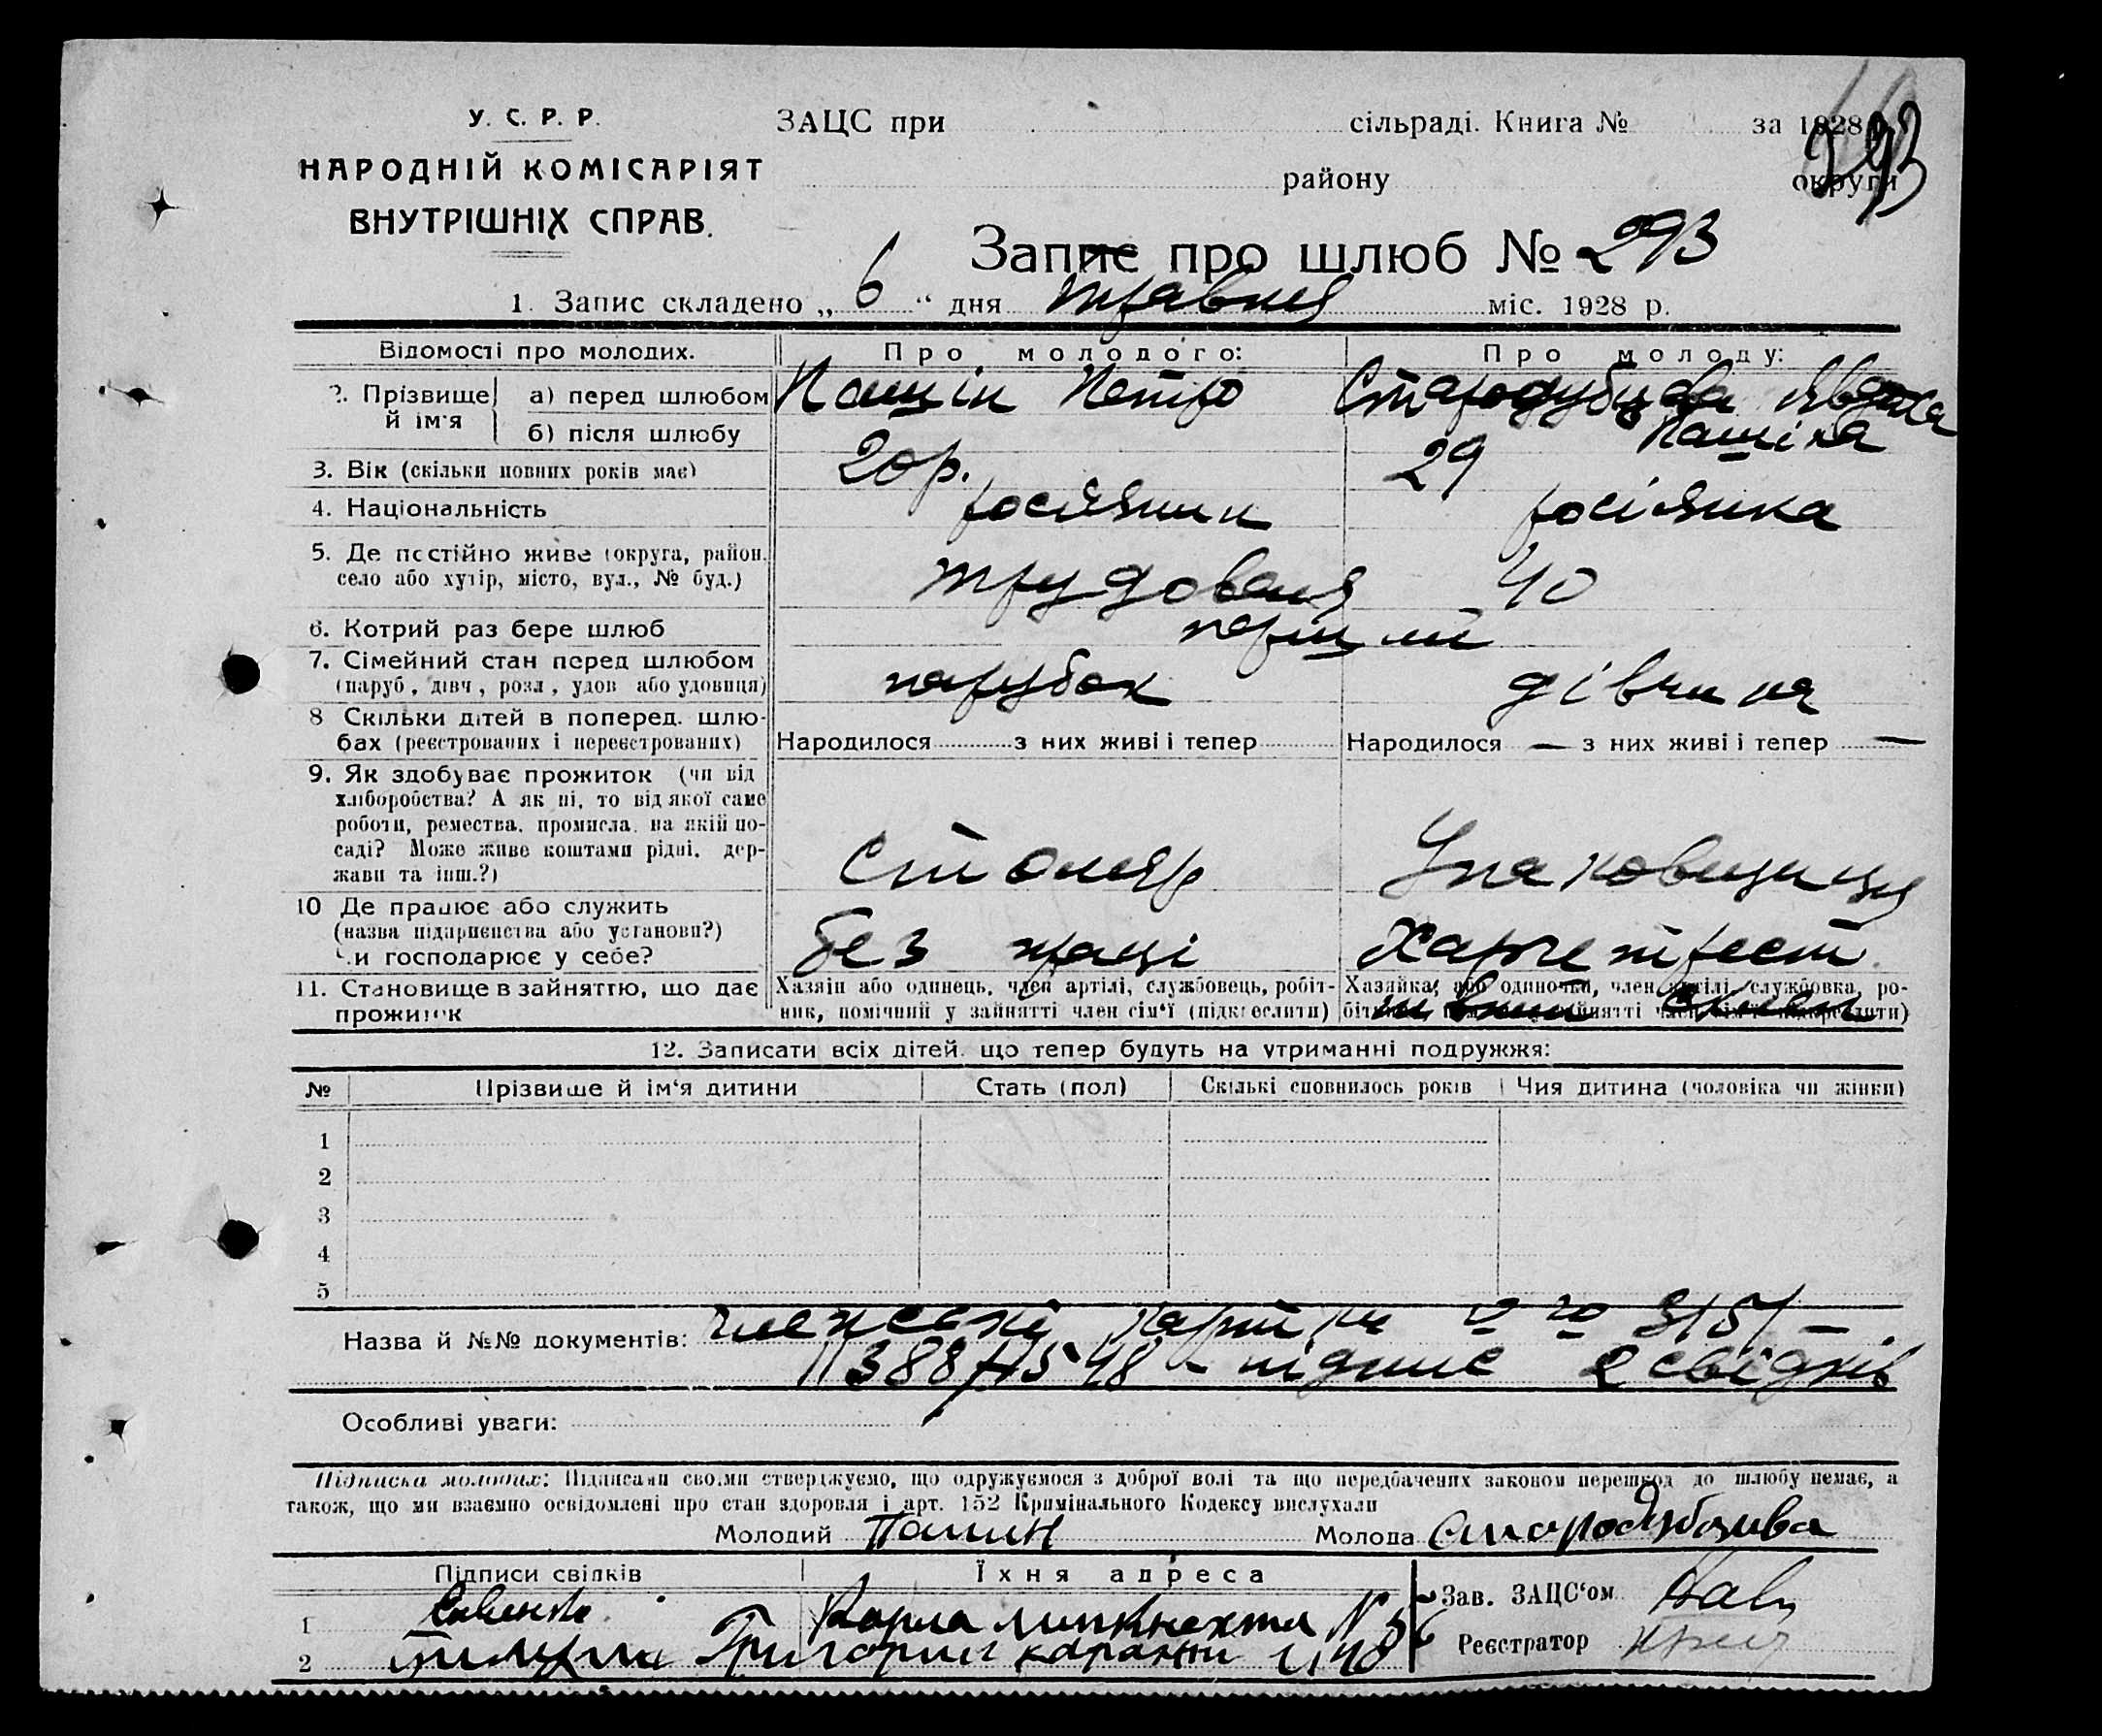 У. С. Р. Р.
НАРОДНІЙ КОМІСАРІЯТ
ВНУТРІШНІХ СПРАВ.
ЗАЦС при сільраді. Книга № за 1928
району округи
293
Запис про шлюб № 293
1. Запис складено „ 6 “ дня травня міс. 1928 р.
Відомості про молодих. Про молодого: Про молоду:
2. Прізвище й ім'я а) перед шлюбом Пашін Петро Стародубцева Явдоха
б) після шлюбу Пашіна
3. Вік (скільки повних років має) 20 р. 29
4. Національність росіянин росіянка
5. Де постійно живе (округа, район. село або хутір, місто, вул., № буд.) трудовая 40
6. Котрий раз бере шлюб перший
7. Сімейний стан перед шлюбом (паруб., дівч., розл., удов або удовиця) парубок дівчина
8 Скільки дітей в поперед. шлюбах (реєстрованих і нереєстрованих) Народилося з них живі і тепер Народилося — з них живі і тепер —
9. Як здобуває прожиток (чи від
хліборобства? А як ні, то від якої саме
роботи, ремества, промисла, на якій по-
саді? Може живе коштами рідні, дер-
жави та інш.?) Столяр Упаковщиця
10 Де працює або служить
(назва підприємства або установи?)
Чи господарює у себе? без праці Харчетрест
11. Становище в зайняттю, що дає Хазяїн або одинець, член артілі, службовець, робіт- Хазяйка, або одиночка, член артілі, службовка, ро-
прожиток ник, помічний у зайнятті член сім'ї (підкреслити) бітниця, зайнятті член сім'ї (підкреслити)
12. Записати всіх дітей, що тепер будуть на утриманні подружжя:
№ Прізвище й ім'я дитини Стать (пол) Скількі сповнилось років Чия дитина (чоловіка чи жінки)
1
2
3
4
5
Назва й №№ документів: членські картки
підпис 2 свідків
Особливі уваги:
Підписка молодих: Підписами своїми стверджуємо, що одружуємося з доброї волі та що передбачених законом перешкод до шлюбу немає, а
також, що ми взаємно освідомлені про стан здоровля і арт. 152 Кримінального Кодексу вислухали
Молодий Пашин Молода Стародубцива
Підписи свідків Їхня адреса
1 Карла Липкнехта N 36 Зав. ЗАЦС'ом
2 Григорий Реєстратор